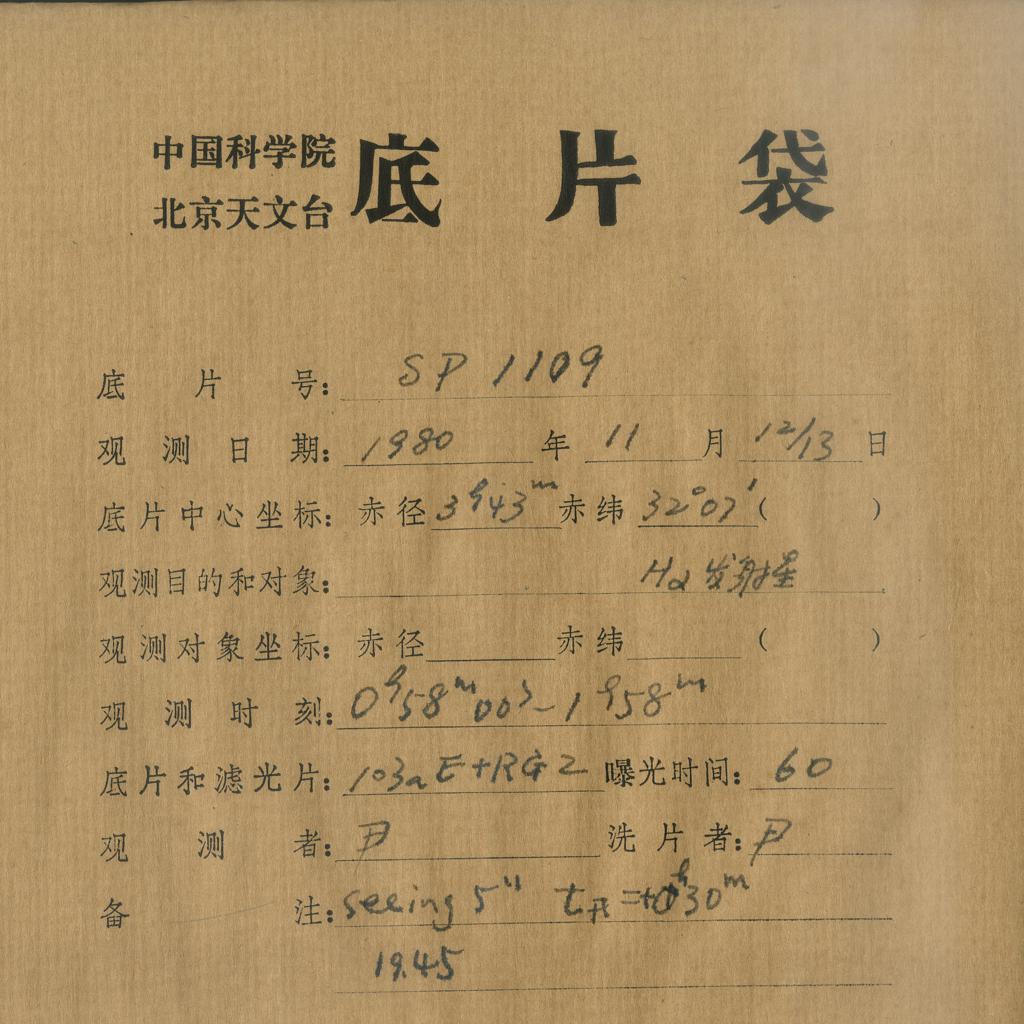 中国科学院
北京天文台
底片袋
底片号: SP 1109
观测日期: 1980 年 11 月 12/13 日
底片中心坐标: 赤径 3h43m 赤纬 32°07′ ( )
观测目的和对象: Hα 发射星
观测对象坐标: 赤径 赤纬 ( )
观测时刻: 0h58m00s~1h58m
底片和滤光片: 103aE+RG2 曝光时间: 60
观测者: 尹 洗片者: 尹
备注: seeing 5″ t开=+0h30m
19.45